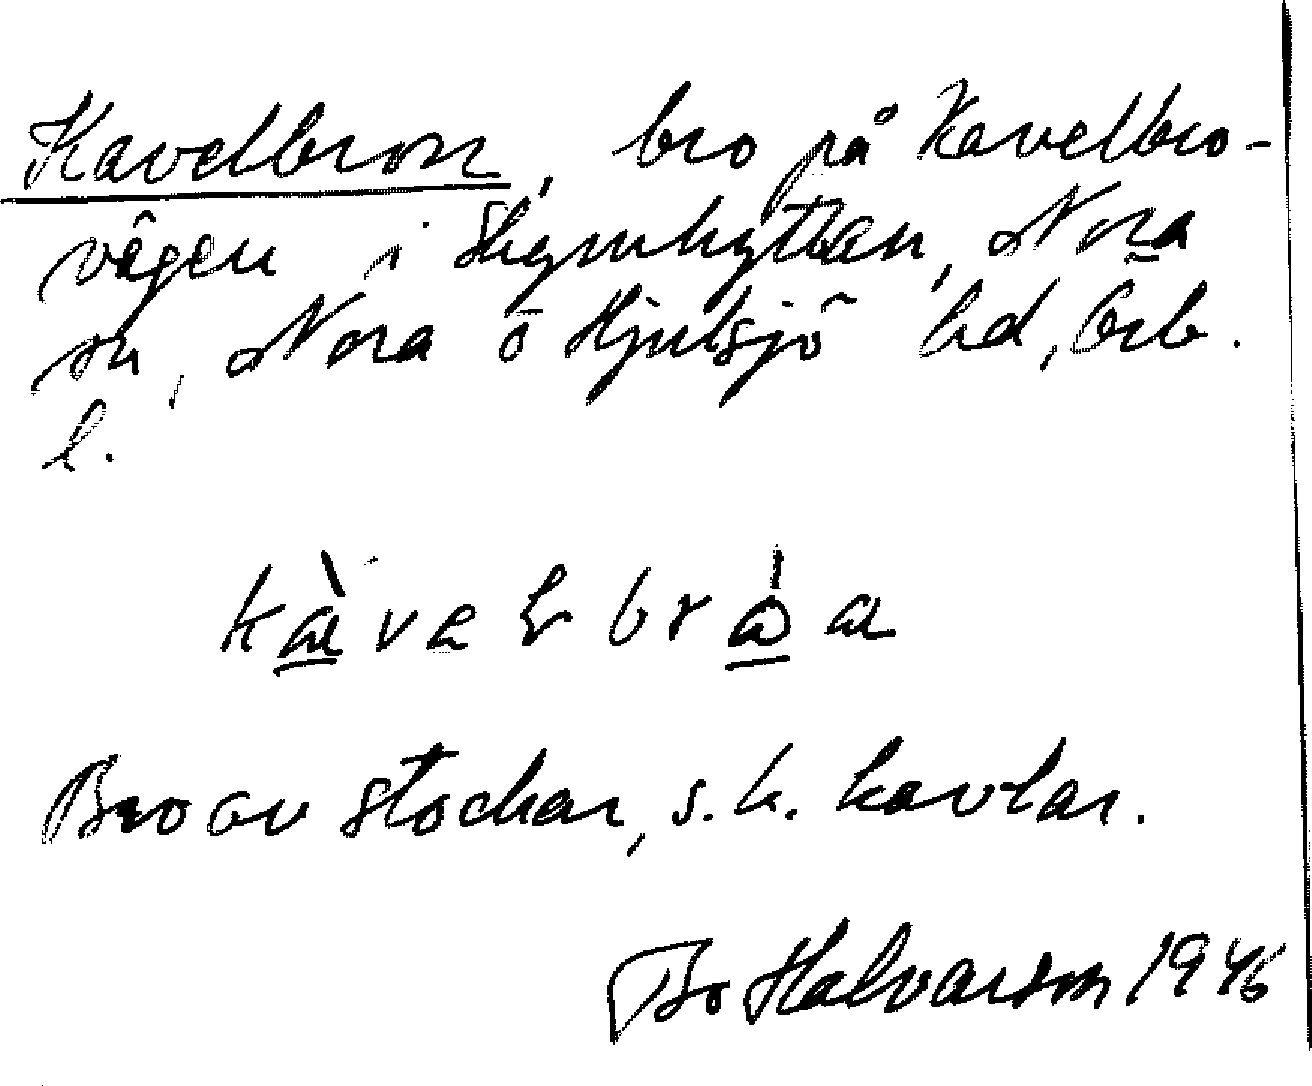 Kavelbron, bro på Kavelbro-
vägen i Skymhyttan, Nora
sn, Nora o Hjulsjö hd, Örb.
l.
Bro av stockar, s.k. kavlar.
Bo Halvarson 1946